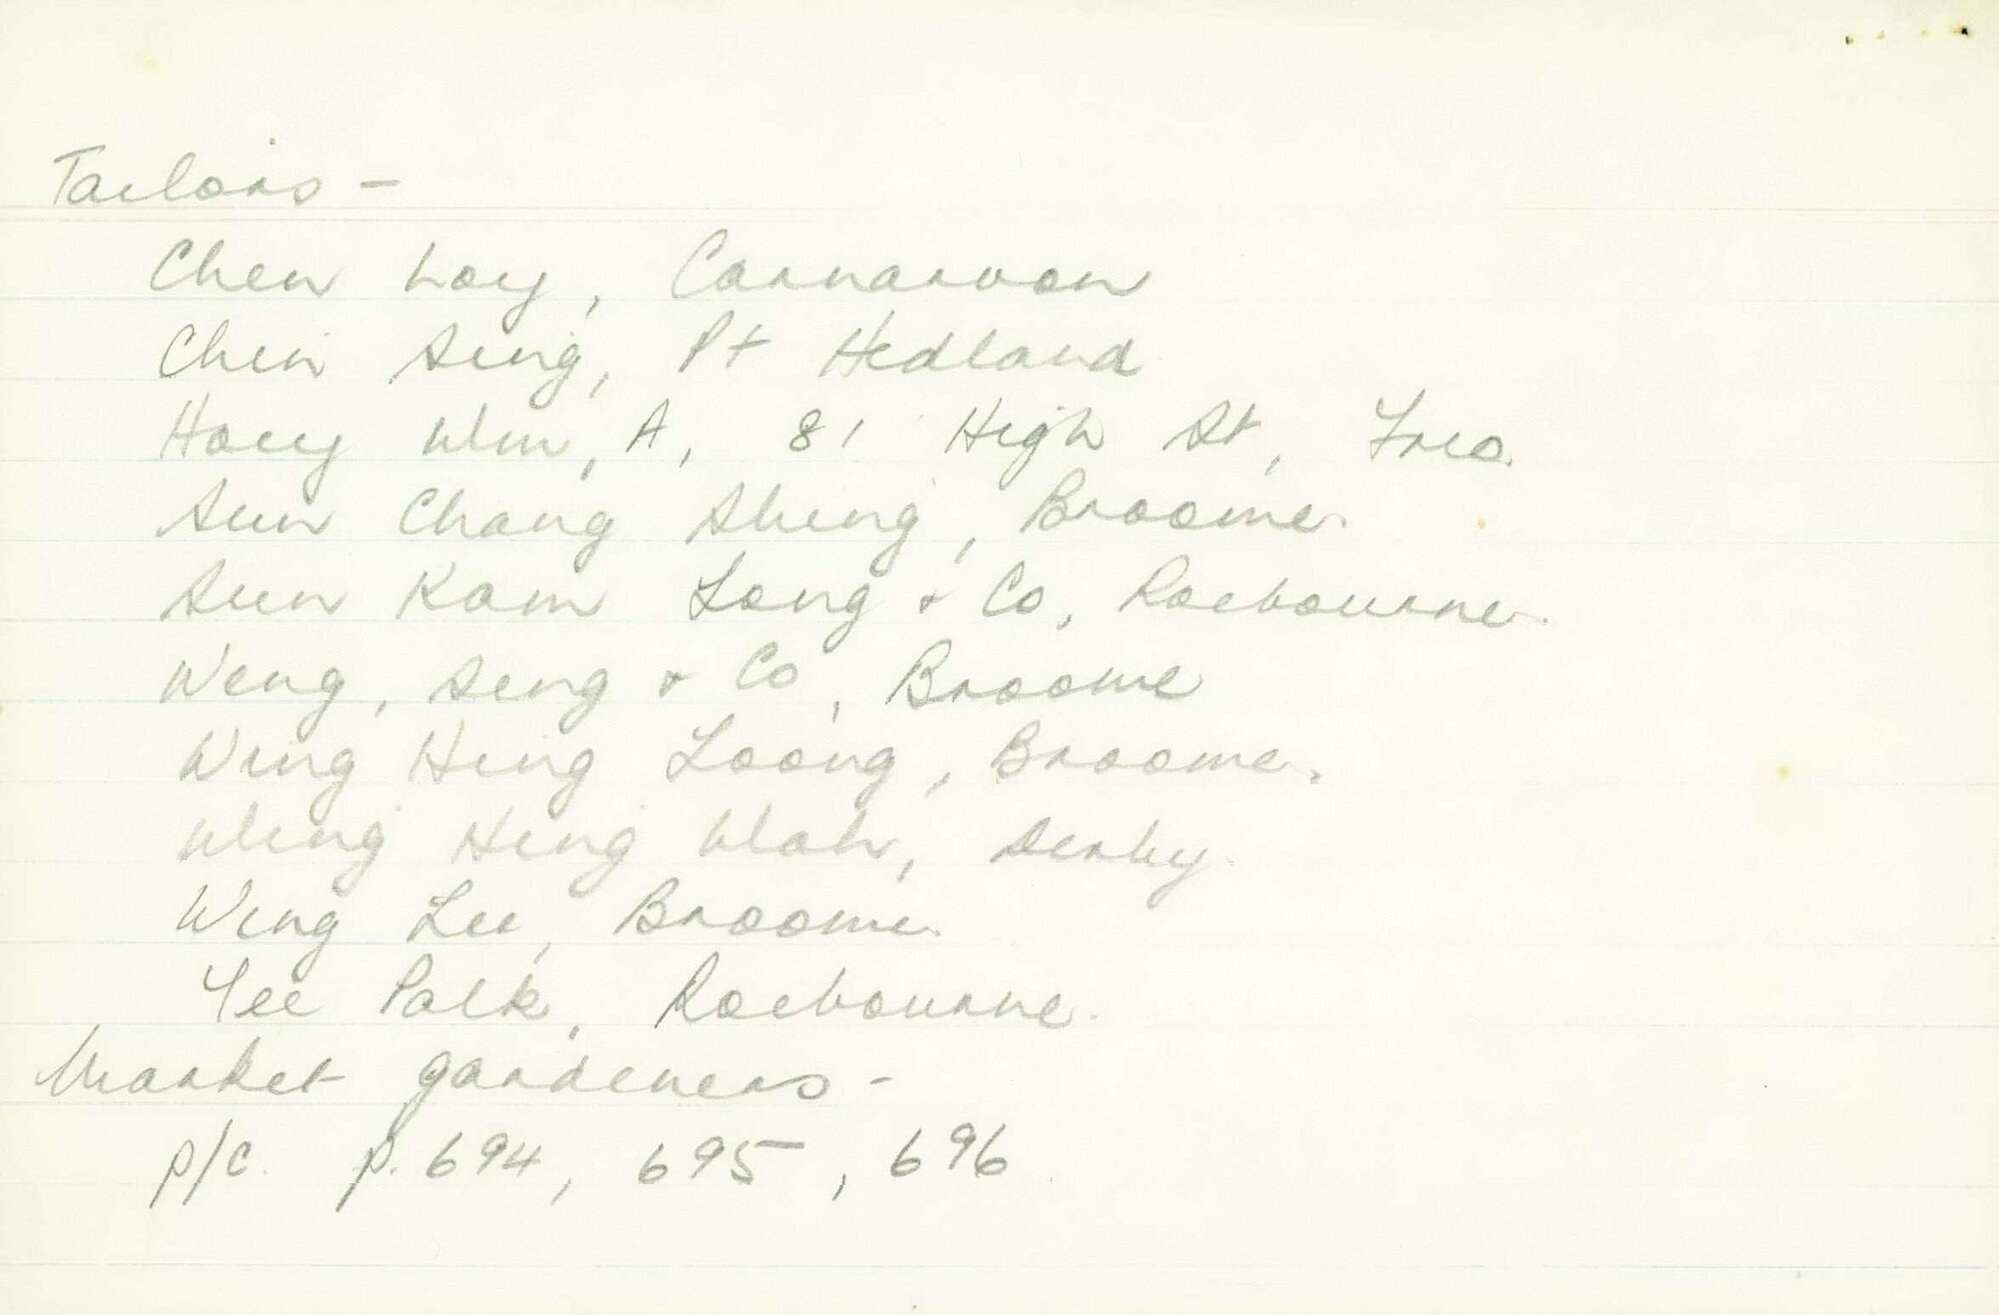 Tailors -
Chen Loy, Carnarvon
Chin Sing, Pt Hedland
Hoey Wm, A, 81 High St, Freo.
Sun Chang Sheng, Broome.
Sun Kam Long & Co, Roebourne.
Weng, Seng & Co, Broome
Wing Hing Loong, Broome.
Wing Hing Wah, Derby.
Wing Lee, Broome.
Yee Palk, Roebourne.
Market gardeners -
p/c. p. 694, 695, 696